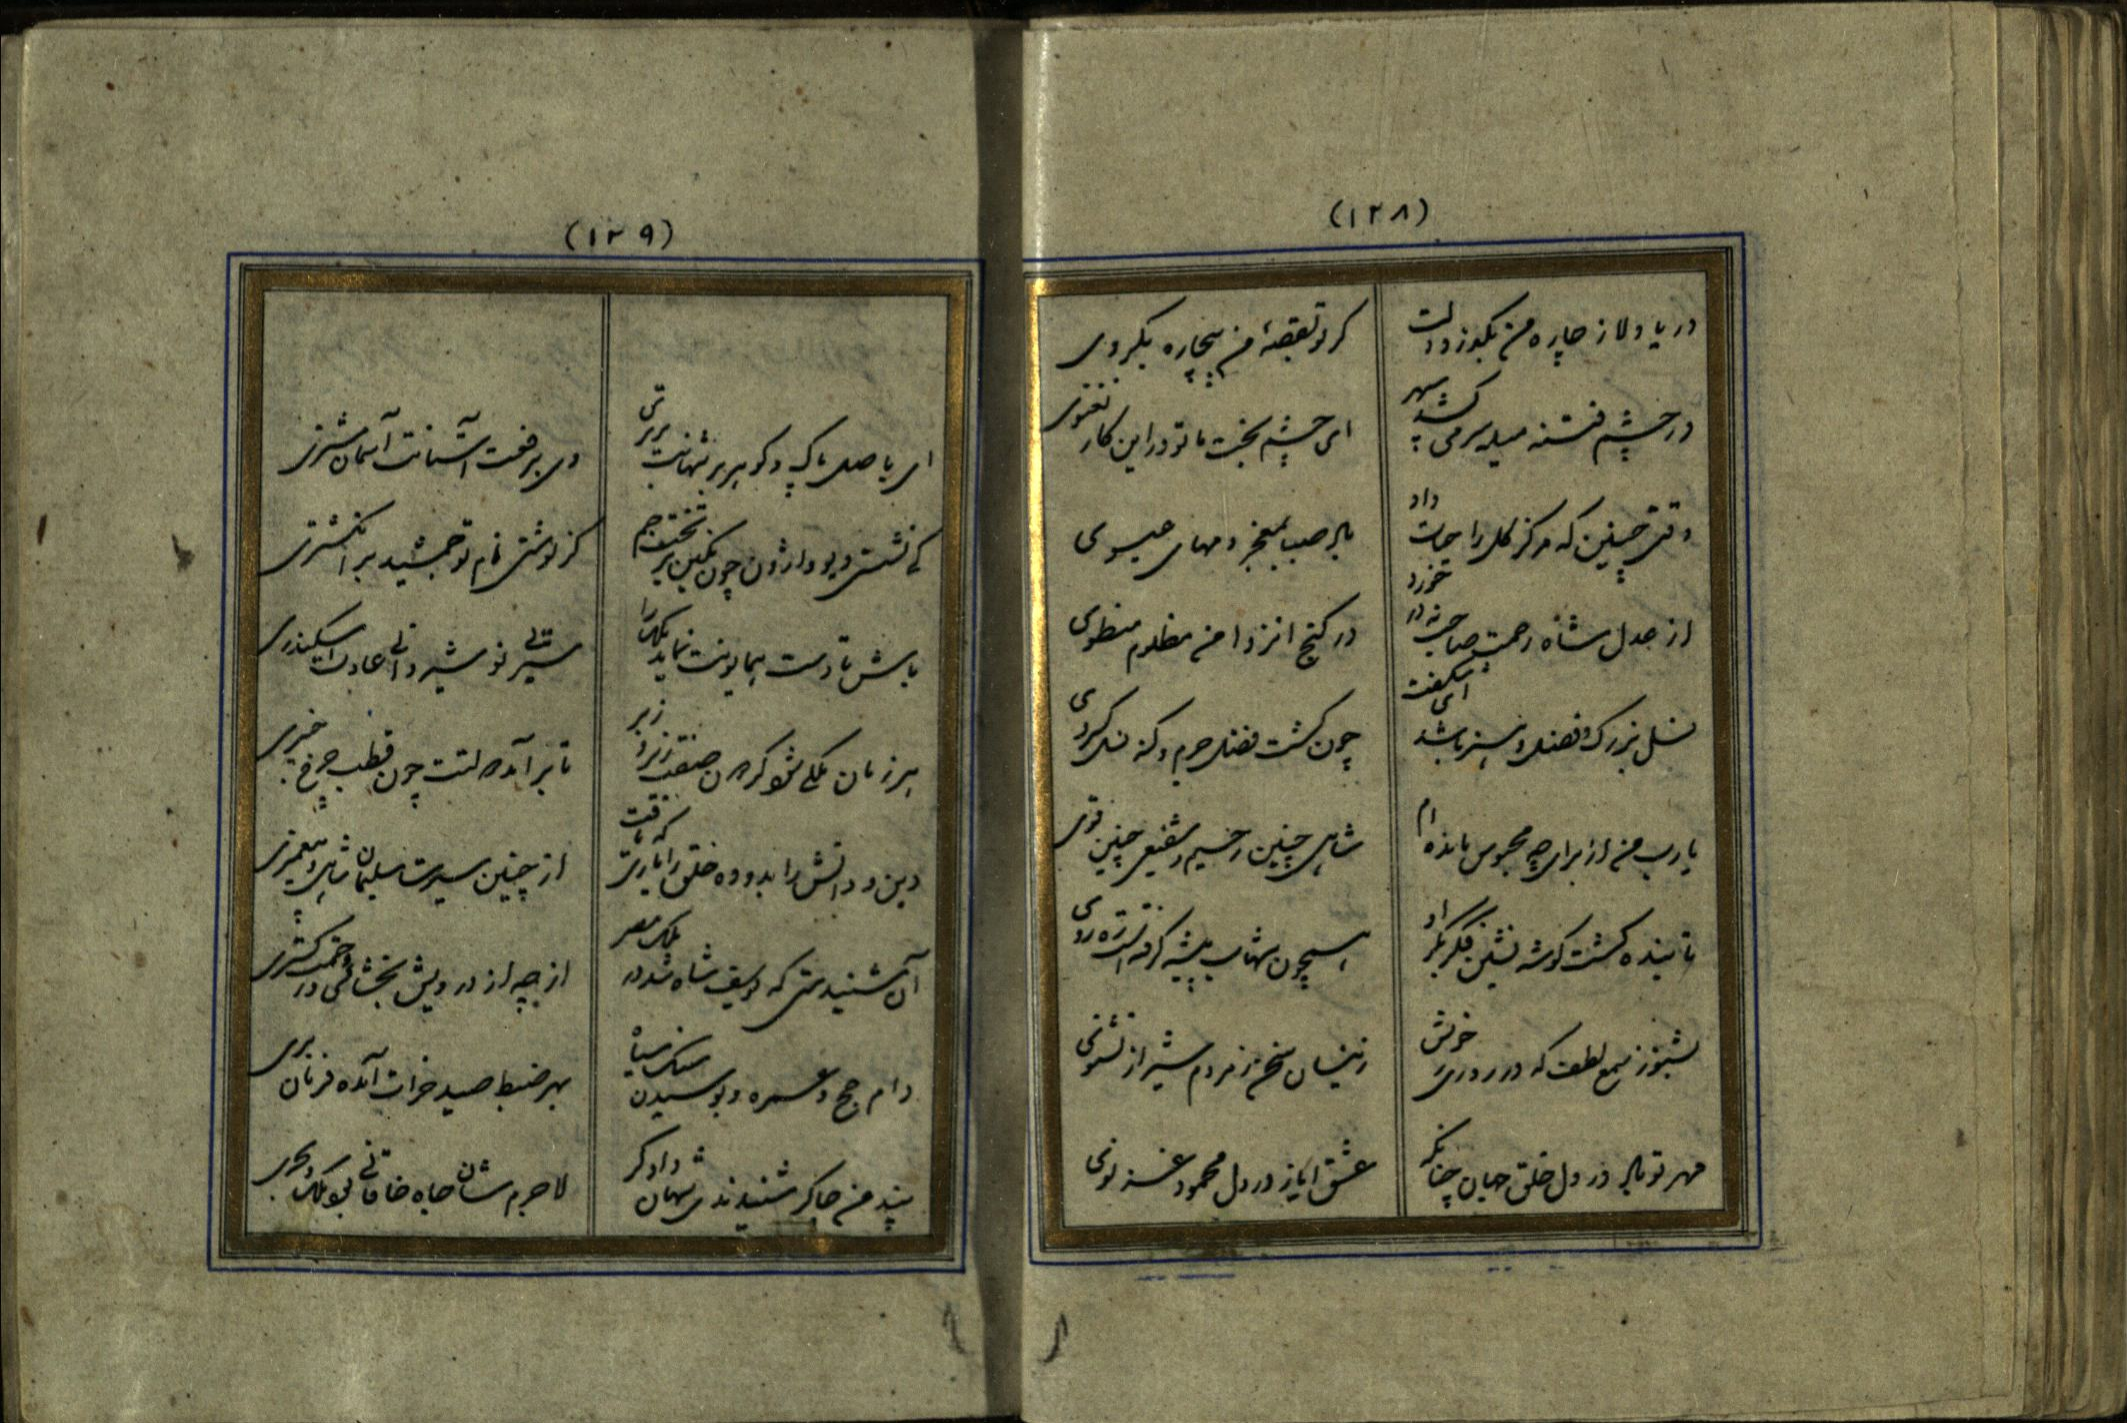 (۱۲۸)
دریا دلا ز چاره من بگذر و دلت
گر تو بقصهٔ من بیچاره بگروی
در چشم فتنه میل سر می‌کشد سپهر
ای چشم بخت ما تو در این کار نغنوی
وقتی چنین که مرکز گل را حیات داد
باد صبا بمعجز دمهای عیسوی
از عدل شاه رحمت صاحب نه در خورد
در کنج انزوا من مظلوم منطوی
نسل بزرگ و فضل و هنر باشد ای شگفت
چون گشت فضل جرم و گنه نسل کسروی
یا رب من از برای چه محبوس مانده‌ام
شاهی چنین رحیم و شفیعی چنین قوی
تا بنده گشت گوشه نشین فکر بکر او
همچون شهاب پیشه گرفتست ره روی
بشنو ز سمع لطف که در روزی خوش
زینسان سخن ز مردم شیراز نشنوی
مهر تو باد در دل خلق جهان چنانکه
عشق ایاز در دل محمود غزنوی
(۱۲۹)
ای باصل پاک و گوهر بر شهانت برتری
وی بر رفعت آستانت آسمان مشتری
کی نشستی دیو واژون چون نگین بر تخت جم
گر نوشتی نام تو جمشید بر انگشتری
باش تا دست همایونت نماید ملک را
سیرتی نوشیروانی عادت اسکندری
هر زمان ملکی شو گردون صفت زیر و زبر
تا بر آمد دولتت چون قطب چرخ چنبری
دین و دانش را بدو ده خلق را یاری که یافت
از چنین سیرت سلیمان شاهی و پیغمبری
آن شنیدستی که یوسف شاه شد در ملک مصر
از چه از درویش بخشائی و رحمت گستری
دام حج و عمره و بوسیدن سنگ سیاه
بهر ضبط صید خیرات آمده فرمان بری
پند من چاکر شنیدندی شهان دادگر
لاجرم شان جاه خاقانی بجو ملک و سری